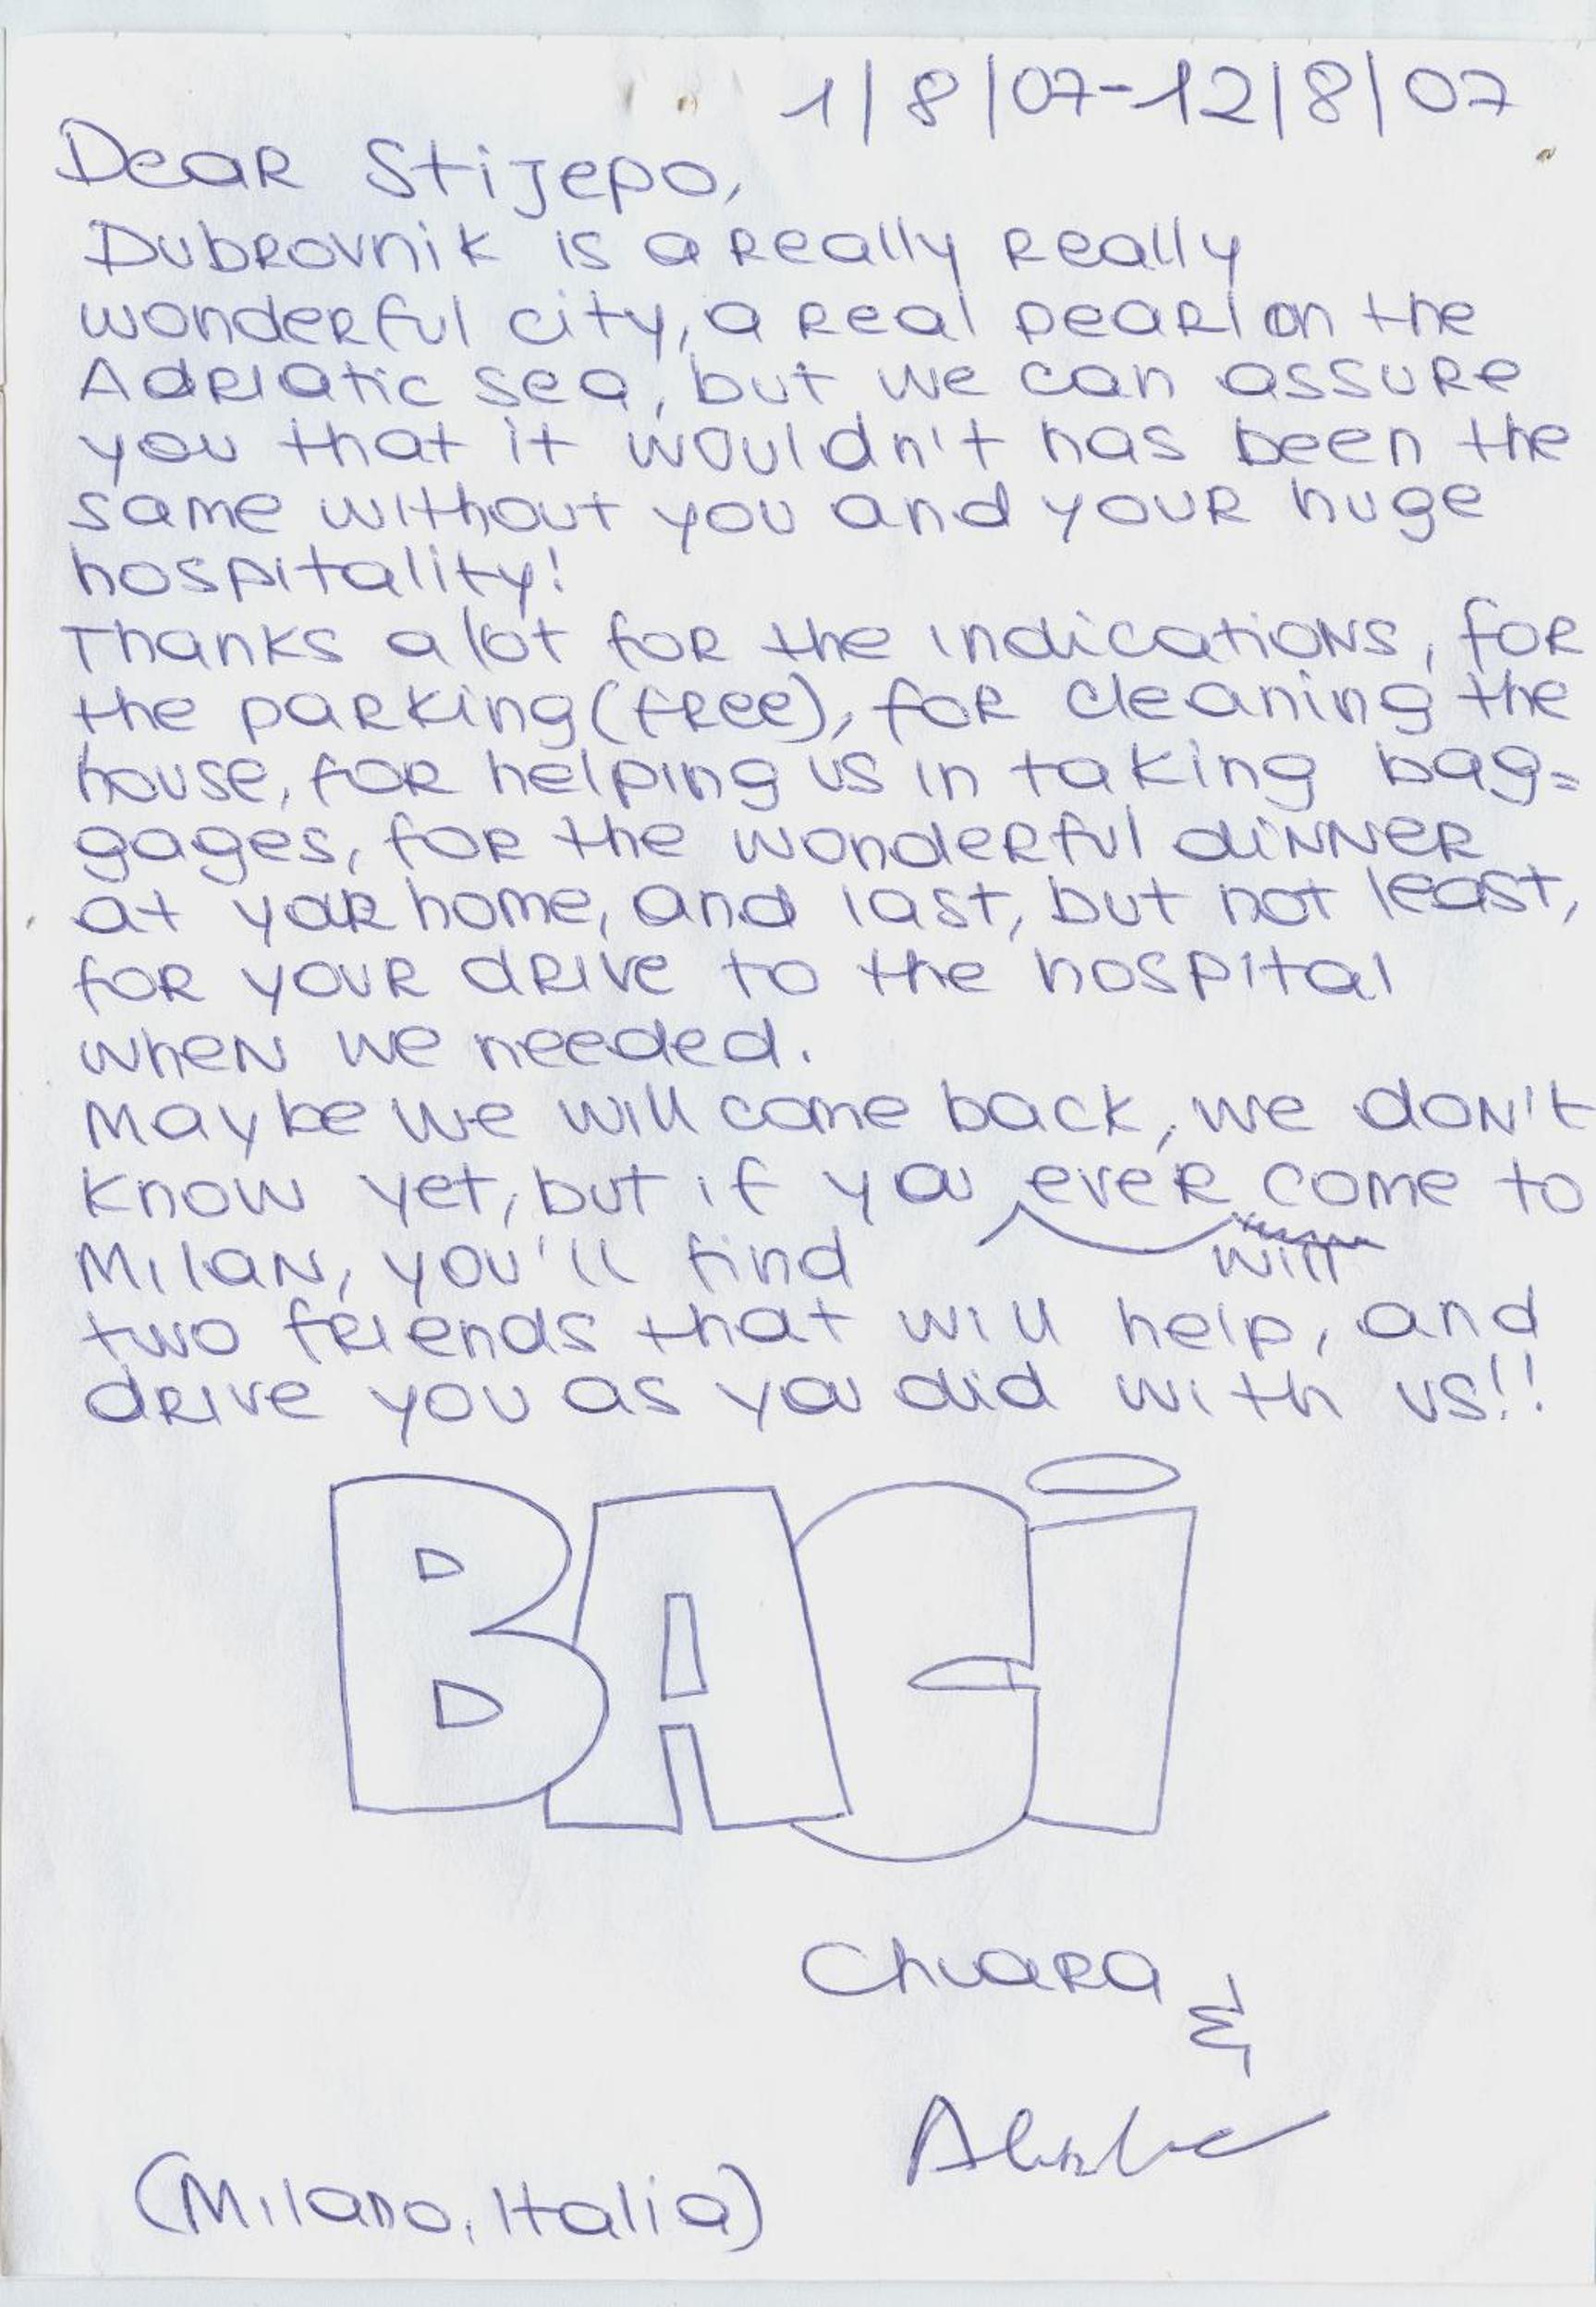 1/8/07-12/8/07
Dear Stijepo,
Dubrovnik is a really really
wonderful city, a real pearl on the
Adriatic sea, but we can assure
you that it wouldn't has been the
same without you and your huge
hospitality!
Thanks a lot for the indications, for
the parking (free), for cleaning the
house, for helping us in taking bag=
gages, for the wonderful dinner
at your home, and last, but not least,
for your drive to the hospital
when we needed.
Maybe we will come back, we don't
know yet, but if you ever come to
will
Milan, you'll find
two friends that will help, and
drive you as you did with us!!
BACi
Chiara
&
(Milano, Italia)